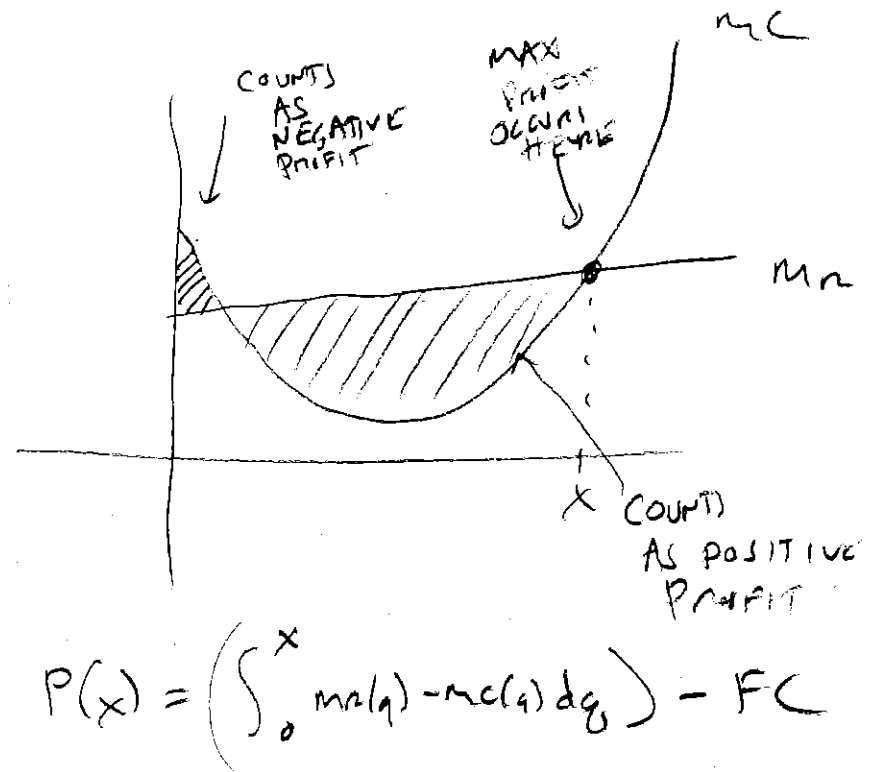 MC
COUNTS
AS
NEGATIVE
PROFIT
MAX
PROFIT
OCCURS
HERE
MR
x
COUNTS
AS POSITIVE
PROFIT
P(x) = (∫₀ˣ MR(q) - MC(q) dq) - FC